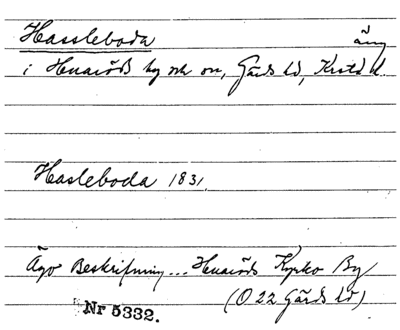 Hassleboda äng
i Huaröds by och sn, Gärds hd, Krstd l.
Hasleboda 1831.
Ägo Beskrifning... Huaröds Kyrko By
(O 22 Gärds hd)
Nr 5332.